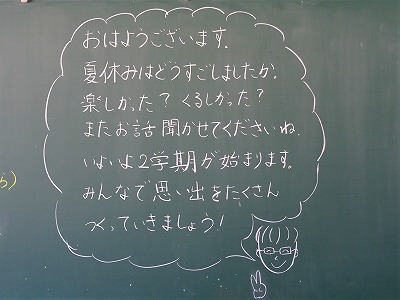 おはようございます.
夏休みはどうすごしましたか.
楽しかった? くるしかった?
またお話聞かせてくださいね.
いよいよ2学期が始まります。
みんなで思い出をたくさん
つくっていきましょう!
ら)